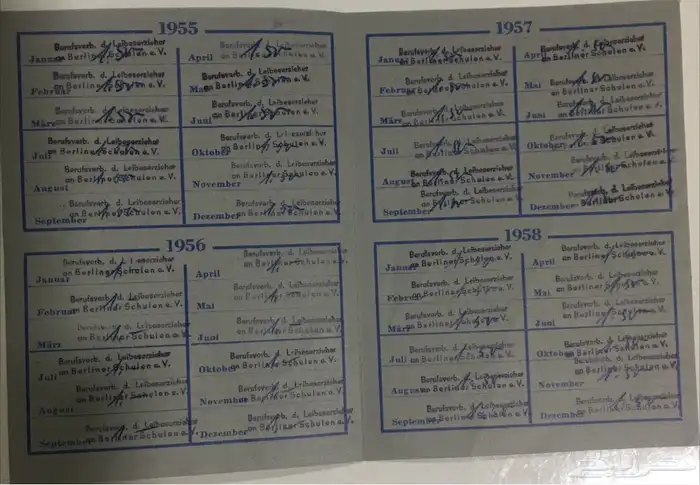 1955
Berufsverb. d. Leibeserzieher
Januar an Berliner Schulen e.V.
Berufsverb. d. Leibeserzieher
Februar an Berliner Schulen e.V.
Berufsverb. d. Leibeserzieher
März an Berliner Schulen e.V.
Berufsverb. d. Leibeserzieher
Juli an Berliner Schulen e.V.
Berufsverb. d. Leibeserzieher
August an Berliner Schulen e.V.
Berufsverb. d. Leibeserzieher
September an Berliner Schulen e.V.
Berufsverb. d. Leibeserzieher
April an Berliner Schulen e.V.
1.50
Berufsverb. d. Leibeserzieher
Mai an Berliner Schulen e.V.
Berufsverb. d. Leibeserzieher
Juni an Berliner Schulen e.V.
Berufsverb. d.
Oktober an Berliner Schulen e.V.
Berufsverb. d. Leibeserzieher
November an Berliner Schulen e.V.
Berufsverb. d. Leibeserzieher
Dezember an Berliner Schulen e.V.
1956
Berufsverb. d. Leibeserzieher
Januar an Berliner Schulen e.V.
Berufsverb. d. Leibeserzieher
Februar an Berliner Schulen e.V.
Berufsverb. d. Leibeserzieher
März an Berliner Schulen e.V.
Berufsverb. d. Leibeserzieher
Juli an Berliner Schulen e.V.
Berufsverb. d. Leibeserzieher
August an Berliner Schulen e.V.
Berufsverb. d. Leibeserzieher
September an Berliner Schulen e.V.
Berufsverb. d. Leibeserzieher
April an Berliner Schulen e.V.
Berufsverb. d. Leibeserzieher
Mai an Berliner Schulen e.V.
Berufsverb. d. Leibeserzieher
Juni an Berliner Schulen e.V.
Berufsverb. d. Leibeserzieher
Oktober an Berliner Schulen e.V.
Berufsverb. d. Leibeserzieher
November an Berliner Schulen e.V.
Berufsverb. d. Leibeserzieher
Dezember an Berliner Schulen e.V.
1957
Berufsverb. d. Leibeserzieher
Januar an Berliner Schulen e.V.
Berufsverb. d. Leibeserzieher
Februar an Berliner Schulen e.V.
Berufsverb. d. Leibeserzieher
März an Berliner Schulen e.V.
Berufsverb. d. Leibeserzieher
Juli an Berliner Schulen e.V.
Berufsverb. d. Leibeserzieher
August an Berliner Schulen e.V.
Berufsverb. d. Leibeserzieher
September an Berliner Schulen e.V.
Berufsverb. d. Leibeserzieher
April an Berliner Schulen e.V.
Berufsverb. d. Leibeserzieher
Mai an Berliner Schulen e.V.
Berufsverb. d. Leibeserzieher
Juni an Berliner Schulen e.V.
Berufsverb. d. Leibeserzieher
Oktober an Berliner Schulen e.V.
Berufsverb. d. Leibeserzieher
November an Berliner Schulen e.V.
Berufsverb. d. Leibeserzieher
Dezember an Berliner Schulen e.V.
1958
Berufsverb. d. Leibeserzieher
Januar an Berliner Schulen e.V.
Berufsverb. d. Leibeserzieher
Februar an Berliner Schulen e.V.
Berufsverb. d. Leibeserzieher
März an Berliner Schulen e.V.
Berufsverb. d. Leibeserzieher
Juli an Berliner Schulen e.V.
Berufsverb. d. Leibeserzieher
August an Berliner Schulen e.V.
Berufsverb. d. Leibeserzieher
September an Berliner Schulen e.V.
Berufsverb. d. Leibeserzieher
April an Berliner Schulen e.V.
Berufsverb. d. Leibeserzieher
Mai an Berliner Schulen e.V.
Berufsverb. d. Leibeserzieher
Juni an Berliner Schulen e.V.
Berufsverb. d. Leibeserzieher
Oktober an Berliner Schulen e.V.
Berufsverb. d. Leibeserzieher
November an Berliner Schulen e.V.
Berufsverb. d. Leibeserzieher
Dezember an Berliner Schulen e.V.
حراج